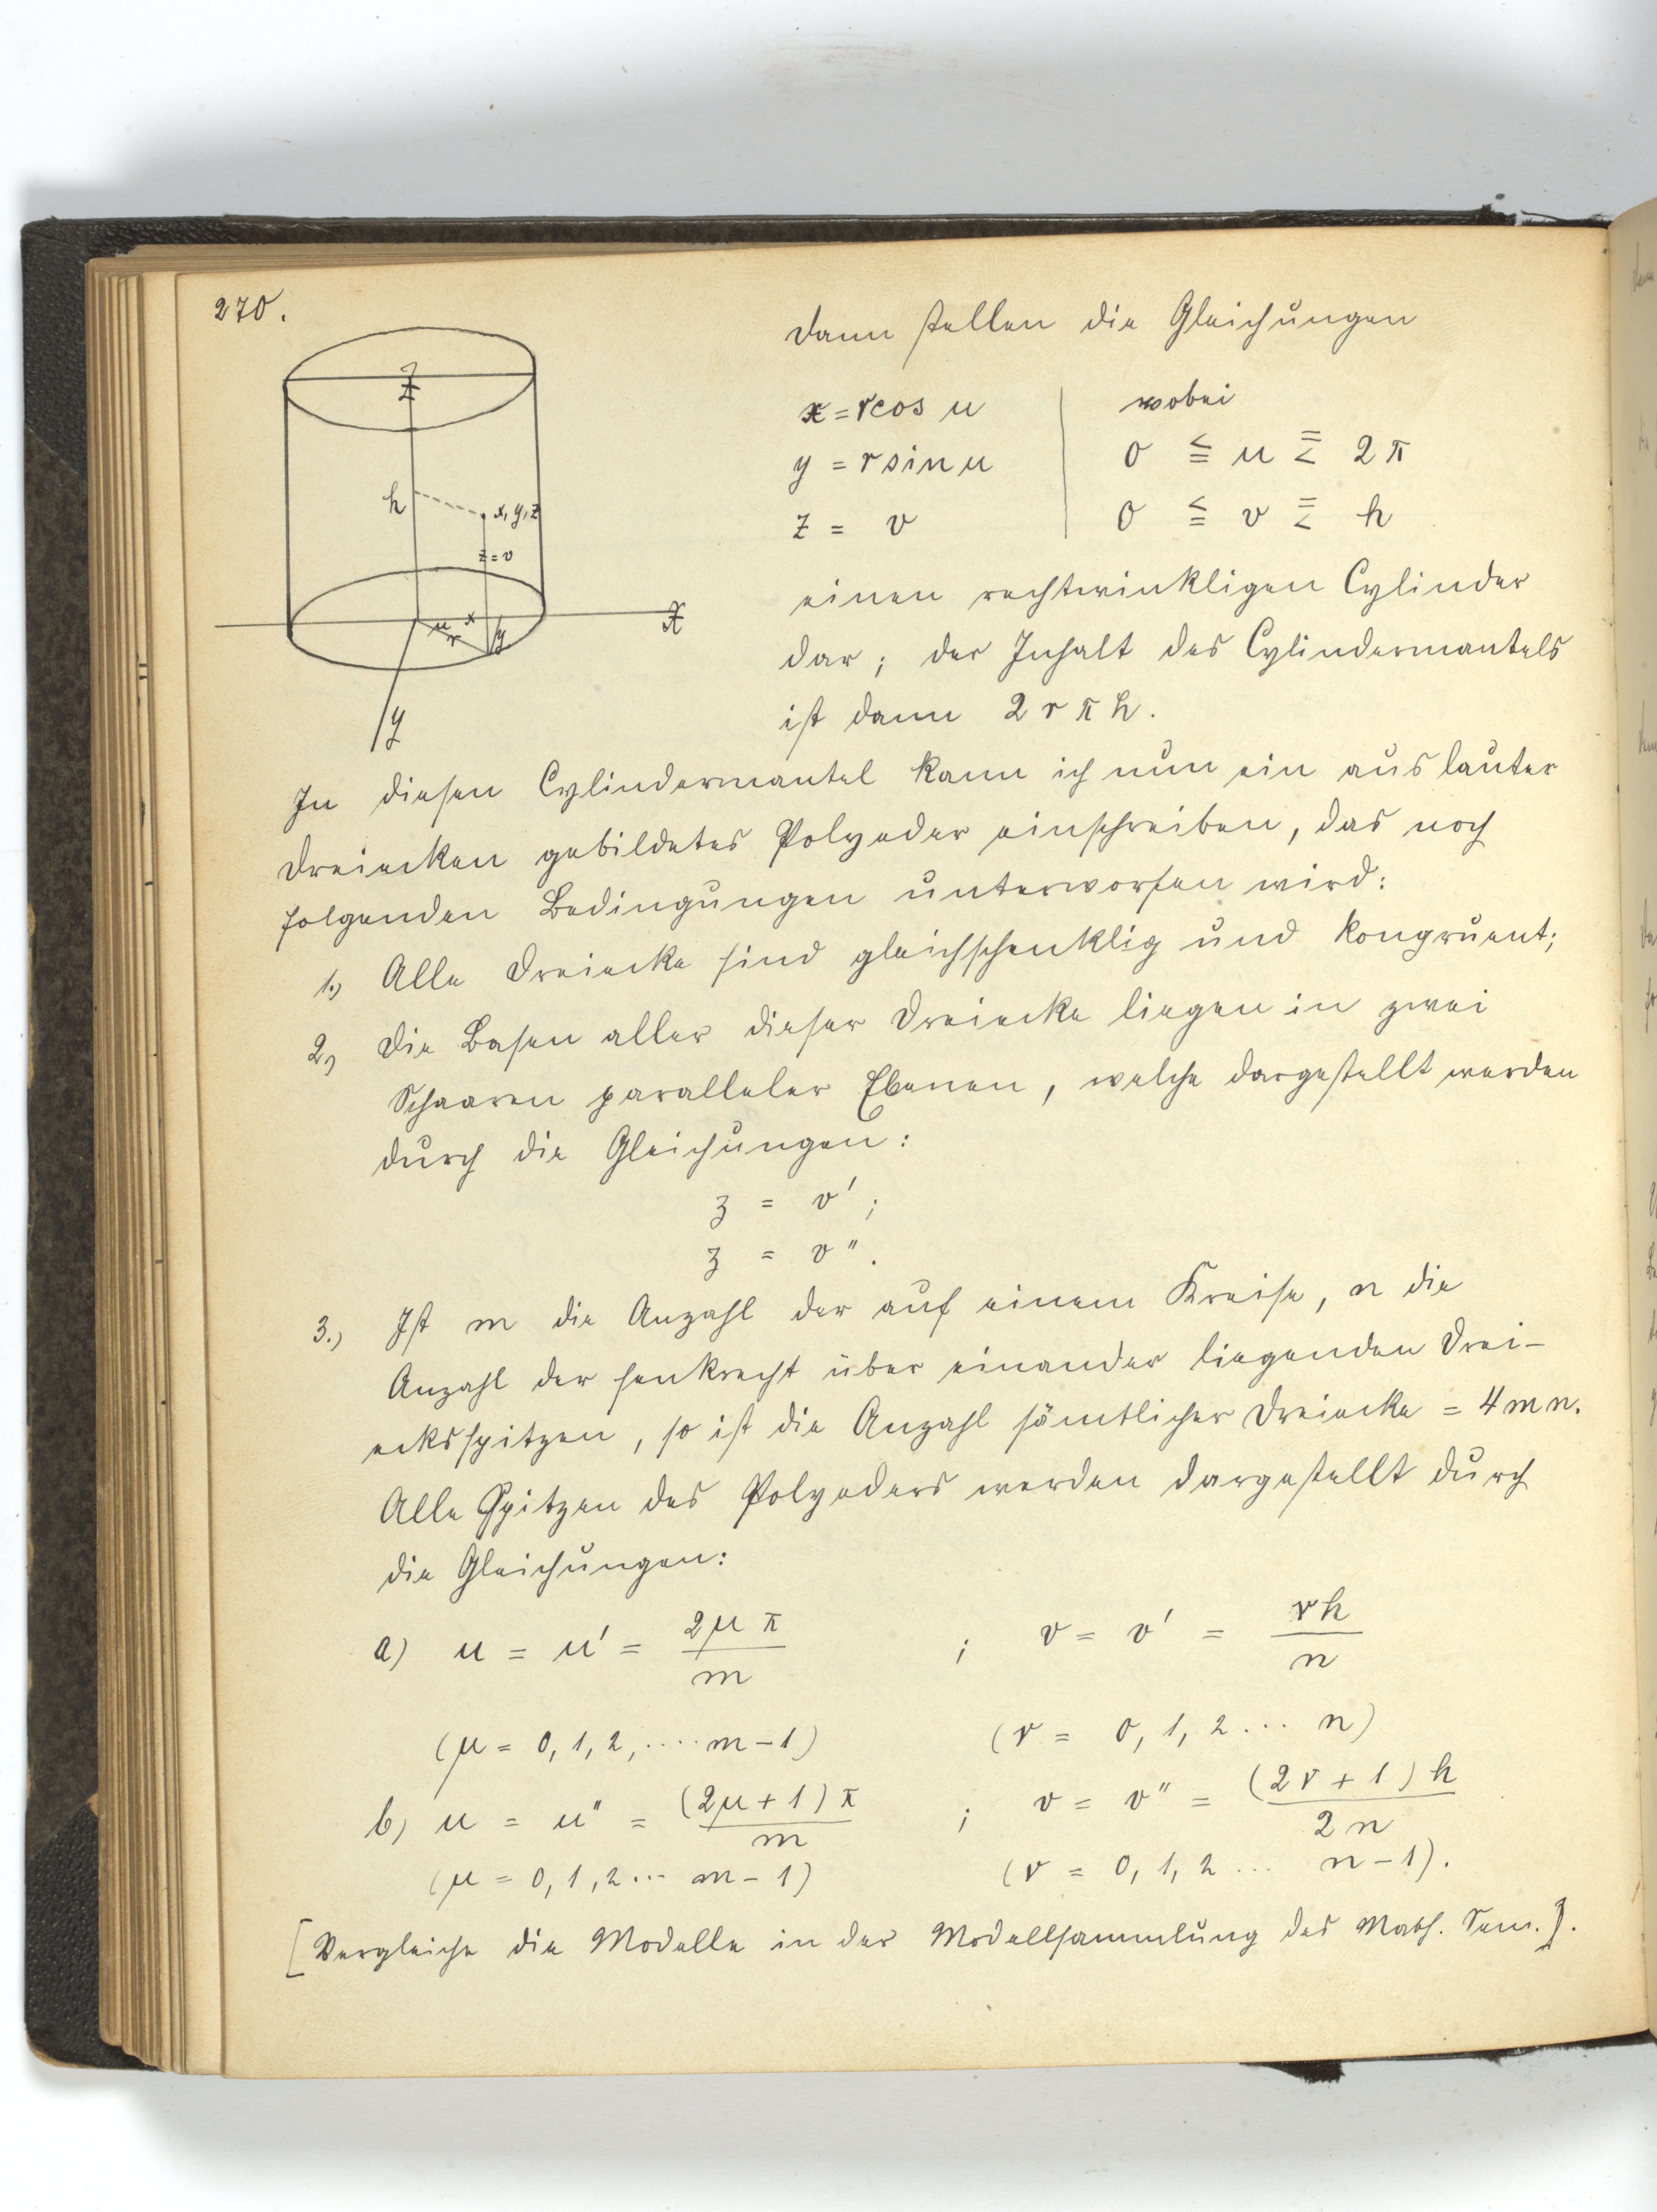 270.
Dann stellen die Gleichungen
x = r cos u | wobei
y = r sin u | 0 ≦ u ≦ 2π
z = v | 0 ≦ v ≦ h
Z
h
x, y, z
z = v
u x
r y
X
y
einen rechtwinkligen Cylinder
dar; der Inhalt des Cylindermantels
ist dann 2 r π h.
In diesen Cylindermantel kann ich nun ein aus lauter
Dreiecken gebildetes Polyeder einschreiben, das noch
folgenden Bedingungen unterworfen wird:
1.) Alle Dreiecke sind gleichschenklig und kongruent;
2.) Die Basen aller dieser Dreiecke liegen in zwei
Schaaren paralleler Ebenen, welche dargestellt werden
durch die Gleichungen:
z = v';
z = v''.
3.) Ist m die Anzahl der auf einem Kreise, n die
Anzahl der senkrecht über einander liegenden Drei-
ecksspitzen, so ist die Anzahl sämtlicher Dreiecke = 4mn.
Alle Spitzen des Polyeders werden dargestellt durch
die Gleichungen:
a) u = u' = 2μπ/m ; v = v' = νh/n
(μ = 0, 1, 2, .... m-1) (ν = 0, 1, 2 ... n)
b) u = u'' = (2μ+1)π/m ; v = v'' = (2ν+1)h/2n
(μ = 0, 1, 2 ... m-1) (ν = 0, 1, 2 ... n-1).
[Vergleiche die Modelle in der Modellsammlung des Math. Sem.].